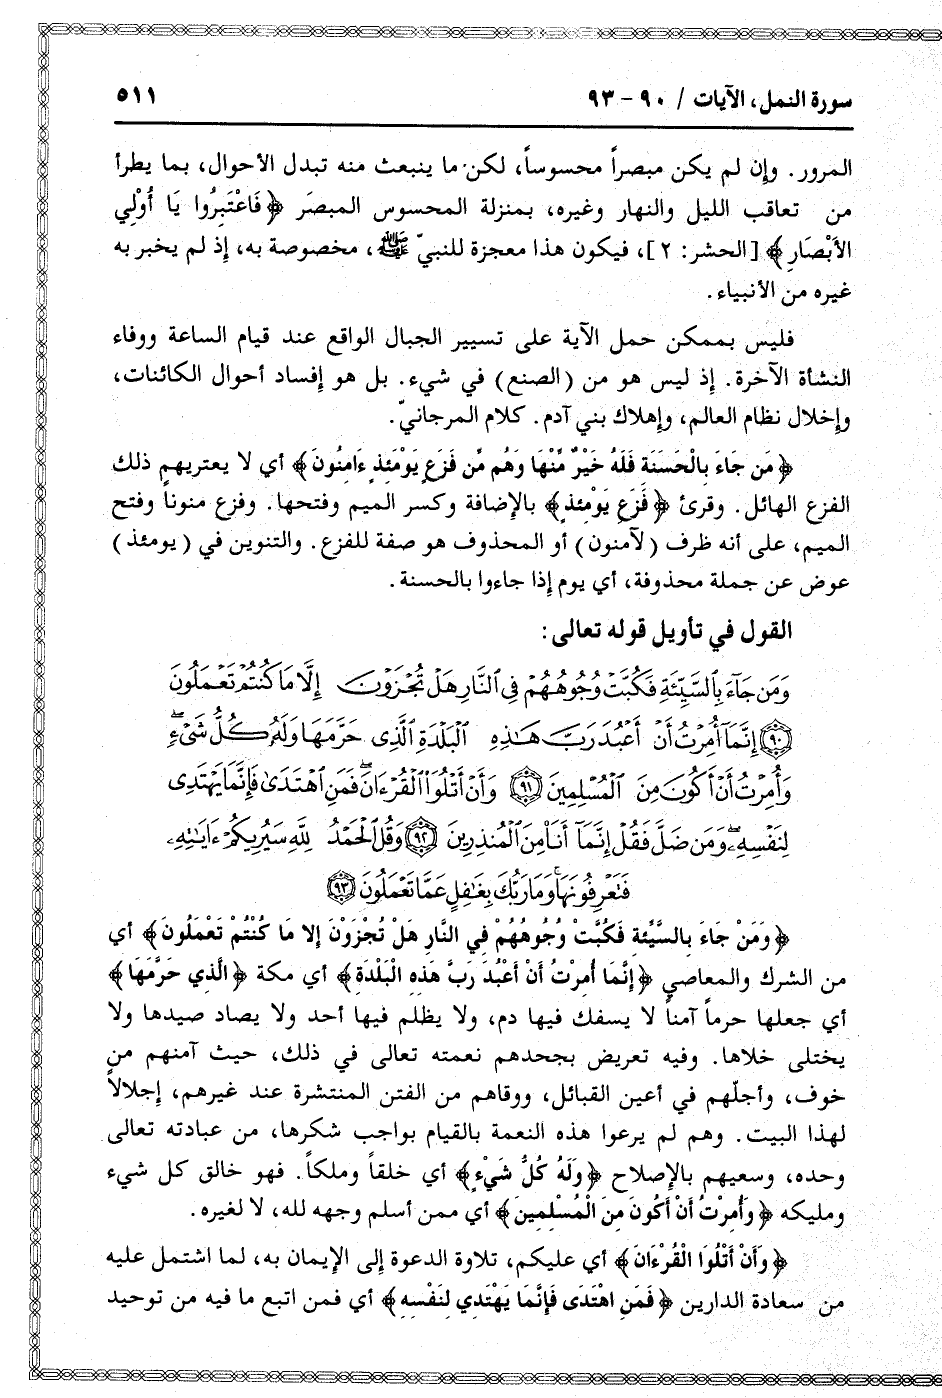 سورة النمل، الآيات / ٩٠ - ٩٣
٥١١
المرور. وإن لم يكن مبصراً محسوساً، لكن ما ينبعث منه تبدل الأحوال، بما يطرأ
من تعاقب الليل والنهار وغيره، بمنزلة المحسوس المبصَر ﴿فَاعْتَبِرُوا يَا أُوْلِي
الأَبْصَارِ﴾ [الحشر: ٢]، فيكون هذا معجزة للنبيّ ﷺ، مخصوصة به، إذ لم يخبر به
غيره من الأنبياء.
فليس بممكن حمل الآية على تسيير الجبال الواقع عند قيام الساعة ووفاء
النشأة الآخرة. إذ ليس هو من (الصنع) في شيء. بل هو إفساد أحوال الكائنات،
وإخلال نظام العالم، وإهلاك بني آدم. كلام المرجانيّ.
﴿مَن جَاءَ بِالْحَسَنَةِ فَلَهُ خَيْرٌ مِّنْهَا وَهُم مِّن فَزَعٍ يَوْمَئِذٍ ءَامِنُونَ﴾ أي لا يعتريهم ذلك
الفزع الهائل. وقرئ ﴿فَزَعِ يَوْمَئِذٍ﴾ بالإضافة وكسر الميم وفتحها. وفزع منوناً وفتح
الميم، على أنه ظرف (لآمنون) أو المحذوف هو صفة للفزع. والتنوين في (يومئذ)
عوض عن جملة محذوفة، أي يوم إذا جاءوا بالحسنة.
القول في تأويل قوله تعالى:
وَمَن جَآءَ بِٱلسَّيِّئَةِ فَكُبَّتْ وُجُوهُهُمْ فِى ٱلنَّارِ هَلْ تُجْزَوْنَ إِلَّا مَا كُنتُمْ تَعْمَلُونَ
﴿٩٠﴾ إِنَّمَآ أُمِرْتُ أَنْ أَعْبُدَ رَبَّ هَٰذِهِ ٱلْبَلْدَةِ ٱلَّذِى حَرَّمَهَا وَلَهُۥ كُلُّ شَىْءٍۖ
وَأُمِرْتُ أَنْ أَكُونَ مِنَ ٱلْمُسْلِمِينَ ﴿٩١﴾ وَأَنْ أَتْلُوَا۟ ٱلْقُرْءَانَۖ فَمَنِ ٱهْتَدَىٰ فَإِنَّمَا يَهْتَدِى
لِنَفْسِهِۦۖ وَمَن ضَلَّ فَقُلْ إِنَّمَآ أَنَا۠ مِنَ ٱلْمُنذِرِينَ ﴿٩٢﴾ وَقُلِ ٱلْحَمْدُ لِلَّهِ سَيُرِيكُمْ ءَايَٰتِهِۦ
فَتَعْرِفُونَهَاۚ وَمَا رَبُّكَ بِغَٰفِلٍ عَمَّا تَعْمَلُونَ ﴿٩٣﴾
﴿وَمَنْ جَاءَ بِالسَّيِّئَةِ فَكُبَّتْ وُجُوهُهُمْ فِي النَّارِ هَلْ تُجْزَوْنَ إِلا مَا كُنْتُمْ تَعْمَلُونَ﴾ أي
من الشرك والمعاصي ﴿إِنَّمَا أُمِرْتُ أَنْ أَعْبُدَ رَبَّ هَذِهِ الْبَلْدَةِ﴾ أي مكة ﴿الَّذِي حَرَّمَهَا﴾
أي جعلها حرماً آمناً لا يسفك فيها دم، ولا يظلم فيها أحد ولا يصاد صيدها ولا
يختلى خلاها. وفيه تعريض بجحدهم نعمته تعالى في ذلك، حيث آمنهم من
خوف، وأجلّهم في أعين القبائل، ووقاهم من الفتن المنتشرة عند غيرهم، إجلالاً
لهذا البيت. وهم لم يرعوا هذه النعمة بالقيام بواجب شكرها، من عبادته تعالى
وحده، وسعيهم بالإصلاح ﴿وَلَهُ كُلُّ شَيْءٍ﴾ أي خلقاً وملكاً. فهو خالق كل شيء
ومليكه ﴿وَأُمِرْتُ أَنْ أَكُونَ مِنَ الْمُسْلِمِينَ﴾ أي ممن أسلم وجهه لله، لا لغيره.
﴿وَأَنْ أَتْلُوَا الْقُرْءَانَ﴾ أي عليكم، تلاوة الدعوة إلى الإيمان به، لما اشتمل عليه
من سعادة الدارين ﴿فَمَنِ اهْتَدَى فَإِنَّمَا يَهْتَدِي لِنَفْسِهِ﴾ أي فمن اتبع ما فيه من توحيد